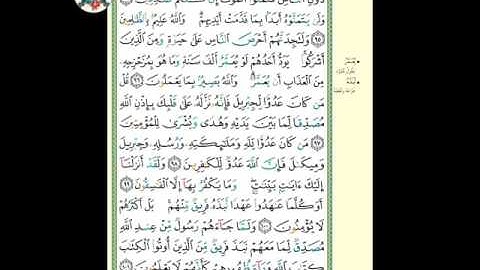 دُونِ ٱلنَّاسِ فَتَمَنَّوُا۟ ٱلْمَوْتَ إِن كُنتُمْ صَٰدِقِينَ
وَلَن يَتَمَنَّوْهُ أَبَدًۢا بِمَا قَدَّمَتْ أَيْدِيهِمْ ۗ وَٱللَّهُ عَلِيمٌۢ بِٱلظَّٰلِمِينَ
٩٥ وَلَتَجِدَنَّهُمْ أَحْرَصَ ٱلنَّاسِ عَلَىٰ حَيَوٰةٍ وَمِنَ ٱلَّذِينَ
أَشْرَكُوا۟ ۚ يَوَدُّ أَحَدُهُمْ لَوْ يُعَمَّرُ أَلْفَ سَنَةٍ وَمَا هُوَ بِمُزَحْزِحِهِۦ
مِنَ ٱلْعَذَابِ أَن يُعَمَّرَ ۗ وَٱللَّهُ بَصِيرٌۢ بِمَا يَعْمَلُونَ ٩٦ قُلْ
مَن كَانَ عَدُوًّا لِّجِبْرِيلَ فَإِنَّهُۥ نَزَّلَهُۥ عَلَىٰ قَلْبِكَ بِإِذْنِ ٱللَّهِ
مُصَدِّقًا لِّمَا بَيْنَ يَدَيْهِ وَهُدًى وَبُشْرَىٰ لِلْمُؤْمِنِينَ
٩٧ مَن كَانَ عَدُوًّا لِّلَّهِ وَمَلَٰٓئِكَتِهِۦ وَرُسُلِهِۦ وَجِبْرِيلَ
وَمِيكَىٰلَ فَإِنَّ ٱللَّهَ عَدُوٌّ لِّلْكَٰفِرِينَ ٩٨ وَلَقَدْ أَنزَلْنَآ
إِلَيْكَ ءَايَٰتٍۭ بَيِّنَٰتٍ ۖ وَمَا يَكْفُرُ بِهَآ إِلَّا ٱلْفَٰسِقُونَ ٩٩
أَوَكُلَّمَا عَٰهَدُوا۟ عَهْدًا نَّبَذَهُۥ فَرِيقٌ مِّنْهُم ۚ بَلْ أَكْثَرُهُمْ
لَا يُؤْمِنُونَ ١٠٠ وَلَمَّا جَآءَهُمْ رَسُولٌ مِّنْ عِندِ ٱللَّهِ
مُصَدِّقٌ لِّمَا مَعَهُمْ نَبَذَ فَرِيقٌ مِّنَ ٱلَّذِينَ أُوتُوا۟ ٱلْكِتَٰبَ
كِتَٰبَ ٱللَّهِ وَرَآءَ ظُهُورِهِمْ كَأَنَّهُمْ لَا يَعْلَمُونَ ١٠١